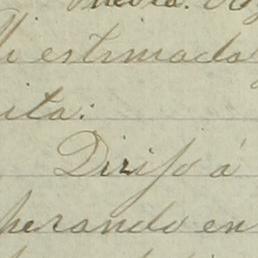 estimada
ita:
Dirijo á
perando en